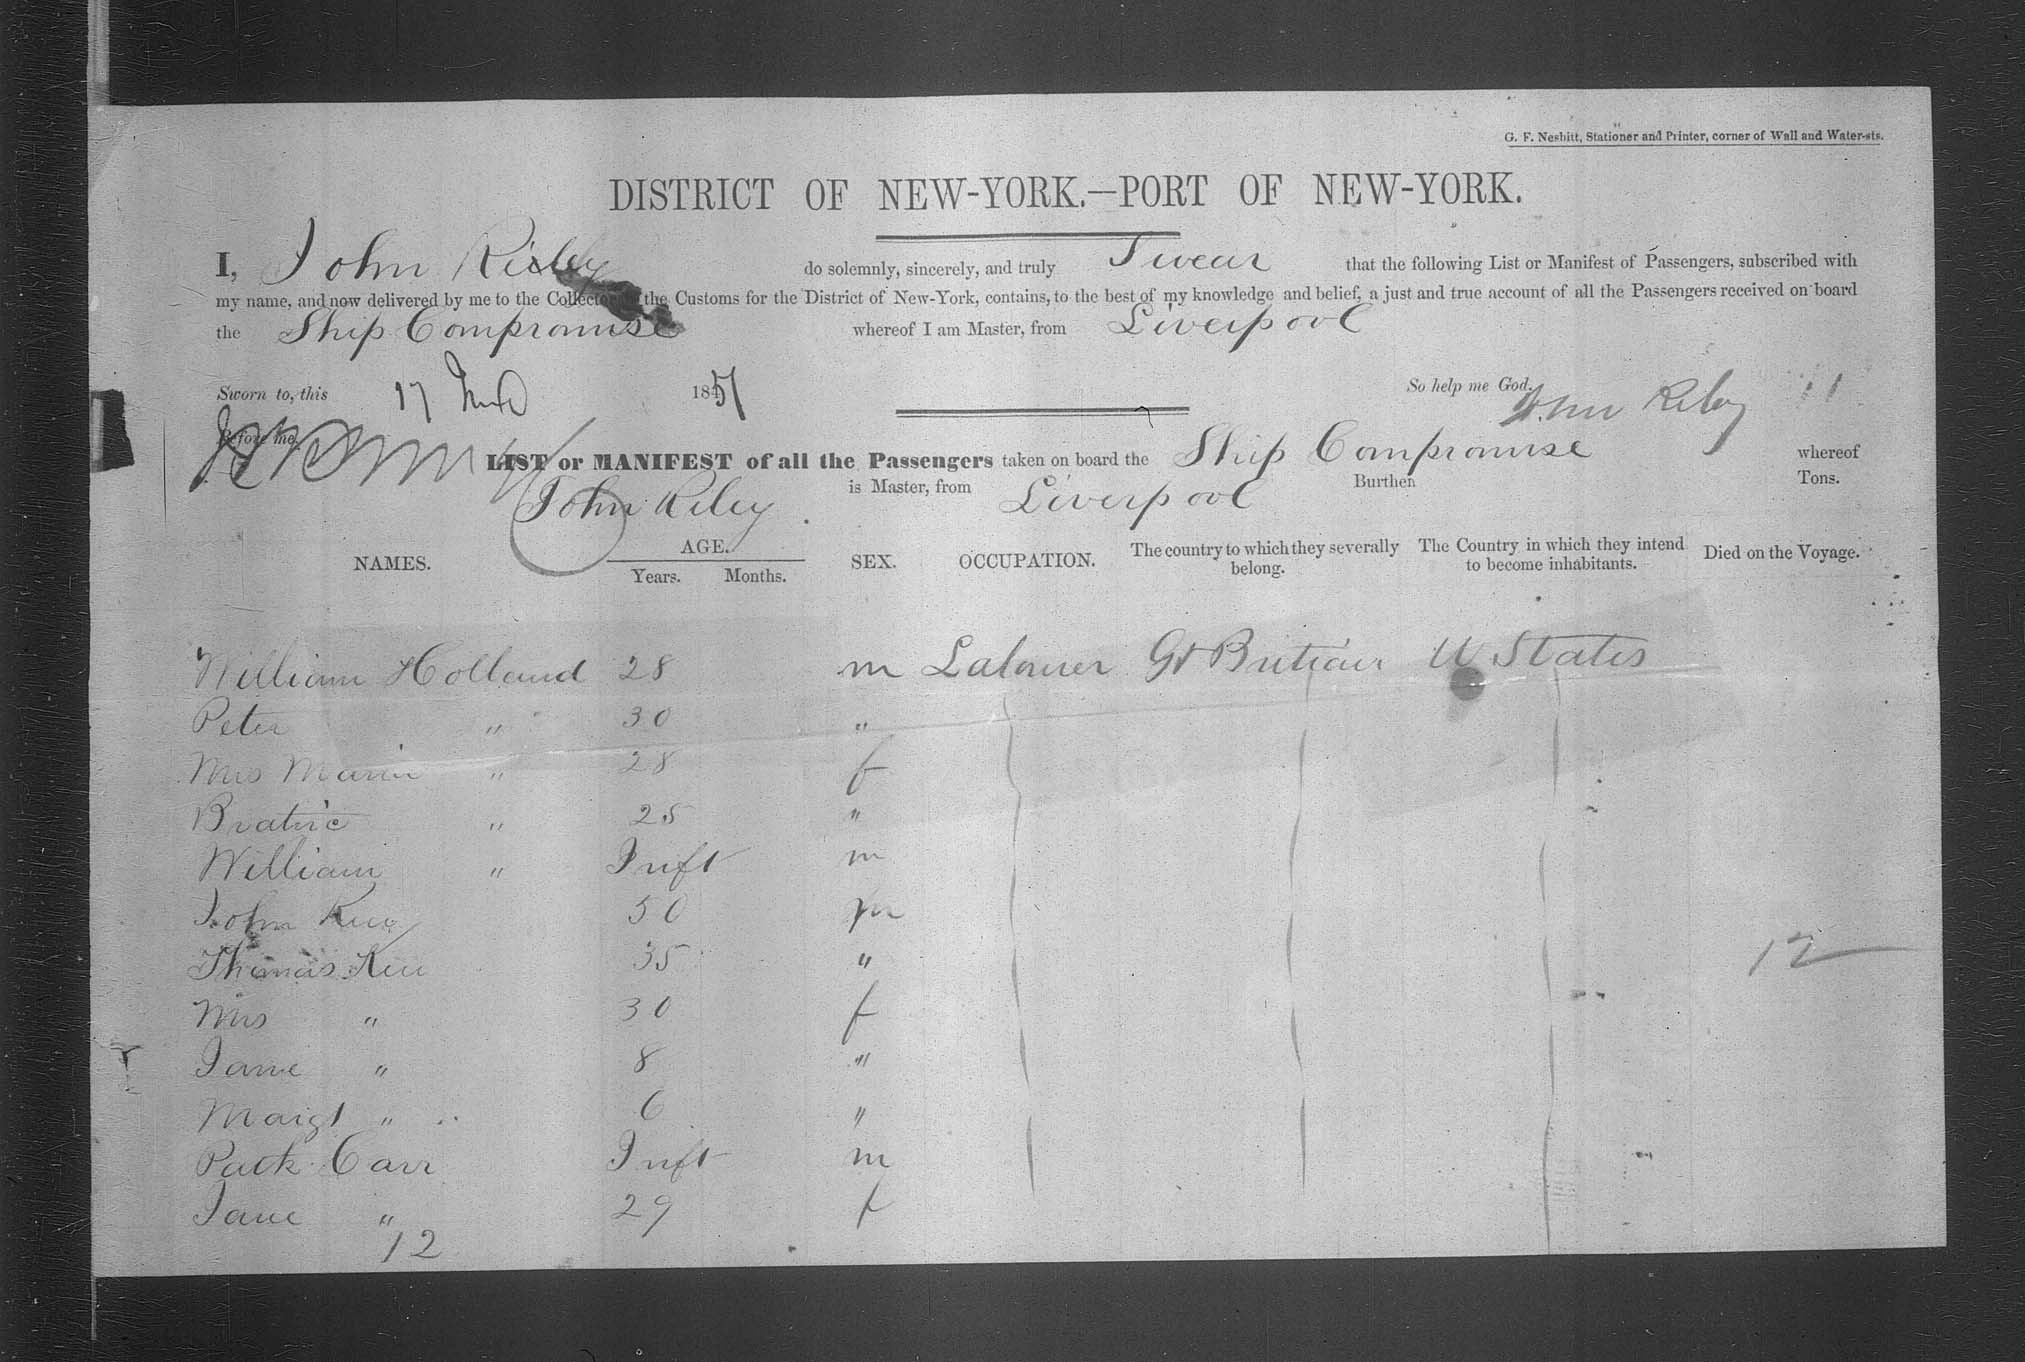 G. F. Nesbitt, Stationer and Printer, corner of Wall and Water-sts.
DISTRICT OF NEW-YORK.—PORT OF NEW-YORK.
I, John Riley do solemnly, sincerely, and truly Swear that the following List or Manifest of Passengers, subscribed with
my name, and now delivered by me to the Collector of the Customs for the District of New-York, contains, to the best of my knowledge and belief, a just and true account of all the Passengers received on board
the Ship Compromise whereof I am Master, from Liverpool
Sworn to, this 17 1851 So help me God. John Riley
Before me,
LIST or MANIFEST of all the Passengers taken on board the Ship Compromise whereof
John Riley is Master, from Liverpool Burthen Tons.
NAMES. AGE. Years. Months. SEX. OCCUPATION. The country to which they severally belong. The Country in which they intend to become inhabitants. Died on the Voyage.
William Holland 28 m Labourer Gt Britain U States
Peter " 30 "
Mrs Maria " 28 f
" 25 "
William " Inft m
John 50 m
Thomas 35 "
Mrs " 30 f
12
Jane " 8 "
Margt " 6 "
Patk Carr Inft m
Jane " 29 f
12